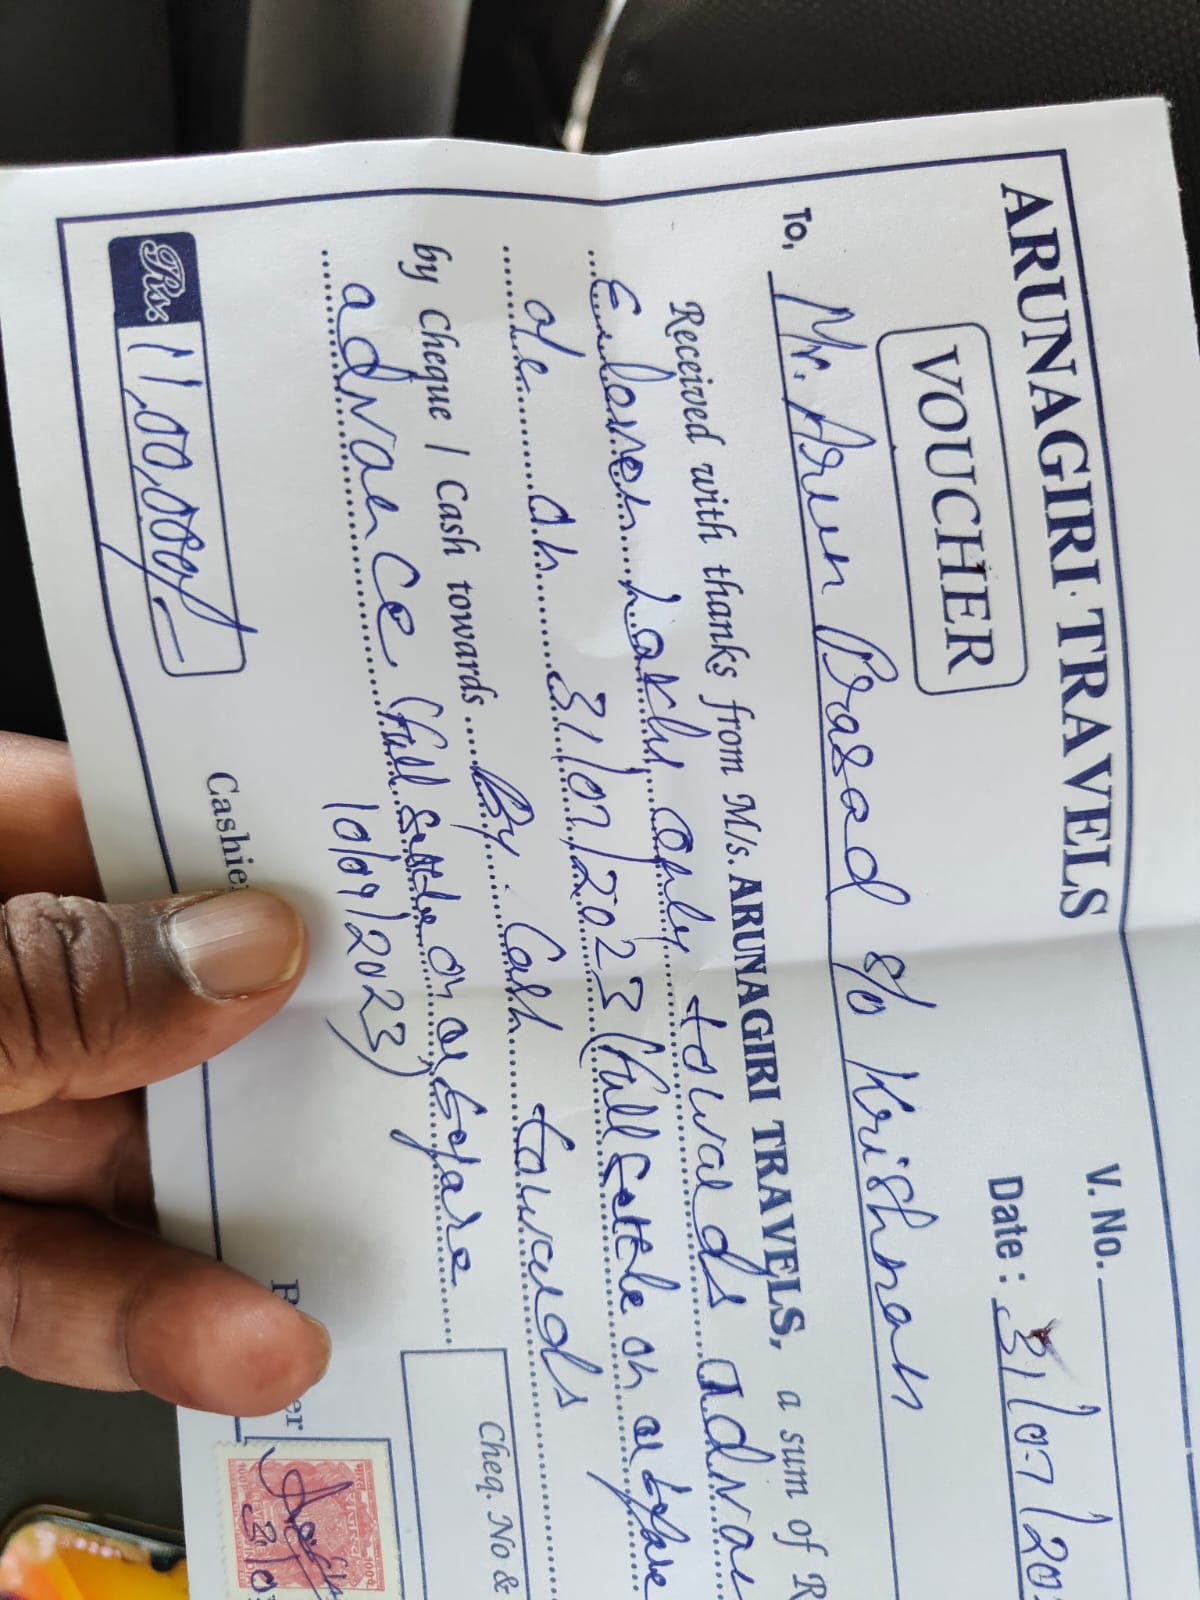 ARUNAGIRI TRAVELS
V. No.
VOUCHER
Date : 31/07/202
To, Mr. Arun Prasad s/o Krishnan
Received with thanks from M/s. ARUNAGIRI TRAVELS, a sum of R
Eleven Lakhs only towards advan
de on 31/07/2023 (Full settle on or before
by Cheque / Cash towards By Cash towards
advance (Full settle on or before
10/09/2023)
Cheq. No &
Rs. 11,00,000/-
Cashie
er